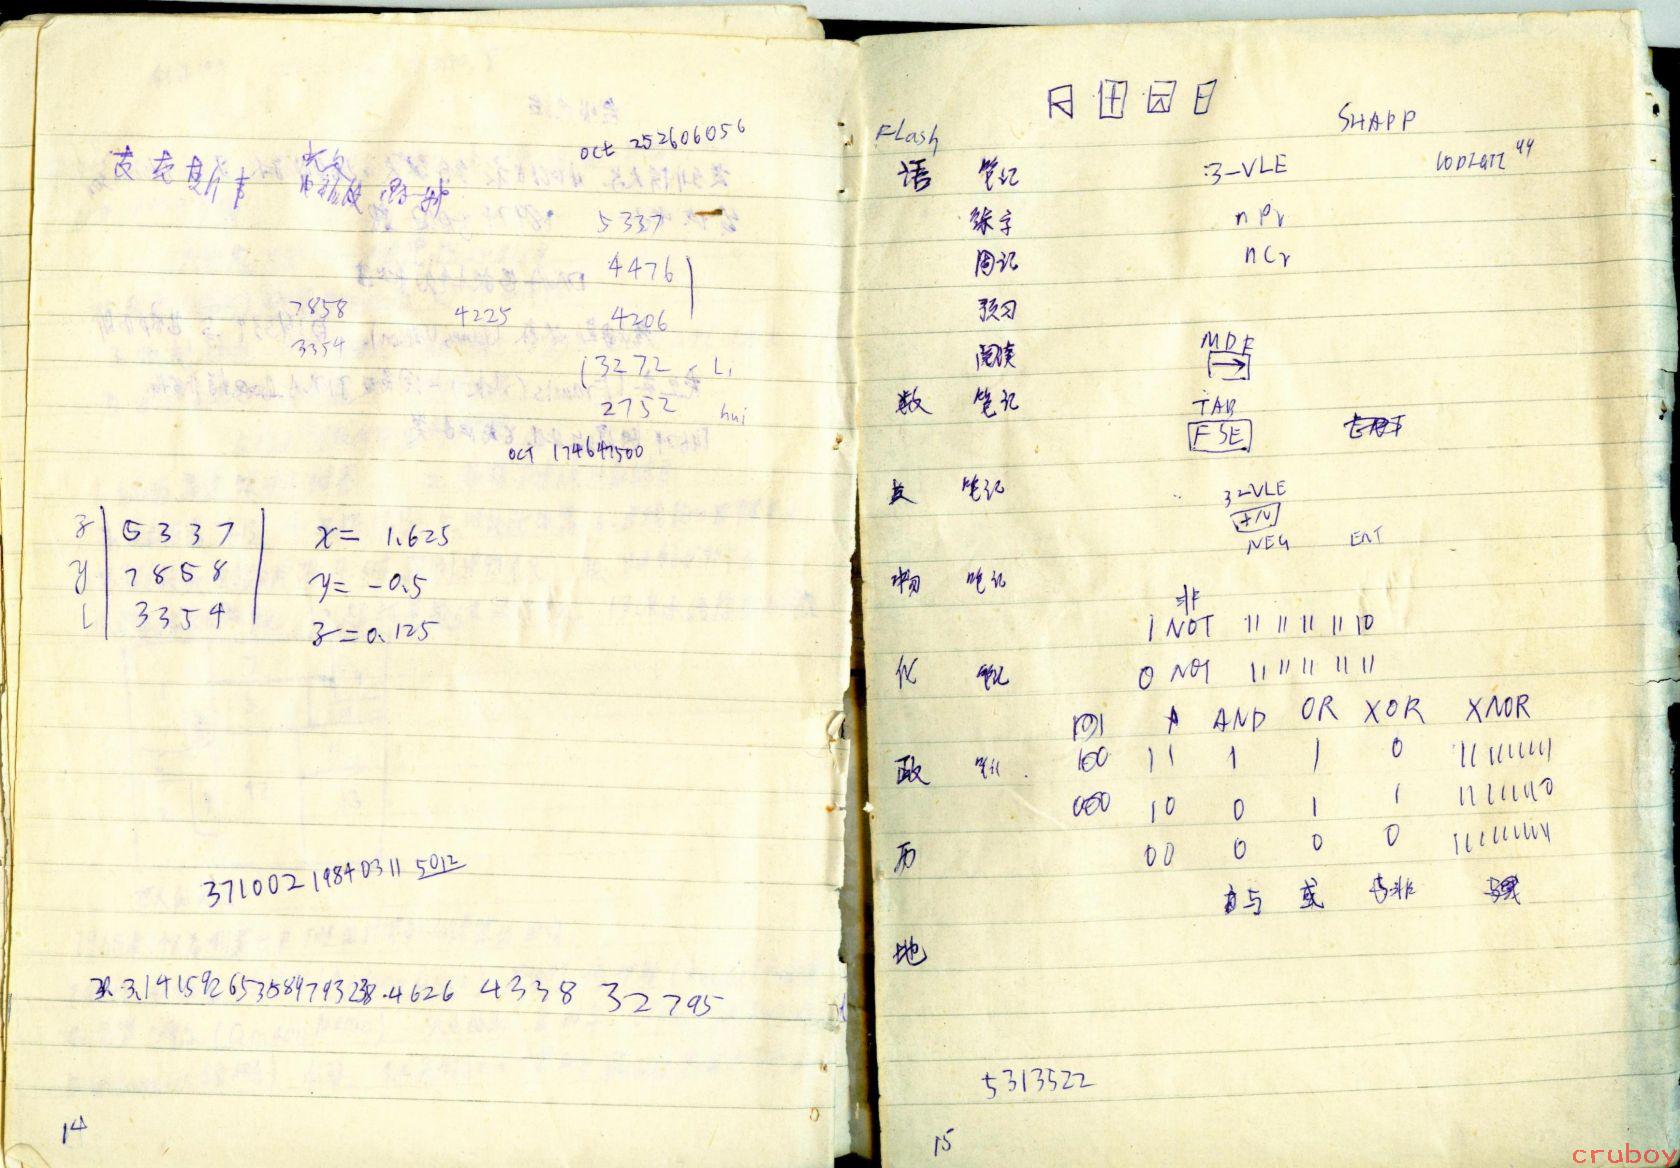 oct 252606056
5337
4476
7858 4225 4206
3354
13272 L,
2752 hui
oct 174647500
z 5337 x= 1.625
y 7858 y= -0.5
3354 z=0.125
371002 19840311 5012
3.141592653589793238.4626 4338 32795
14
SHAPP
Flash
语 笔记 3-VLE
练字 nPr
周记 nCr
预习
阅读 MDF
→
数 笔记 TAB
FSE
笔记 3-VLE
+/N
NEG ENT
物 笔记
非
1 NOT 11 11 11 11 10
化 笔记 0 NOT 11 11 11 11 11
A AND OR XOR XNOR
政 笔记 100 11 1 1 0 1111111111
000 10 0 1 1 1111111110
历 00 0 0 0 1111111111
与 或
地
5313522
15
cruboy